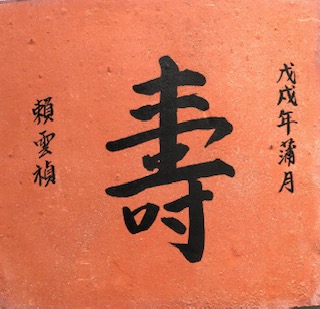 戊戌年蒲月
壽
賴雲禎